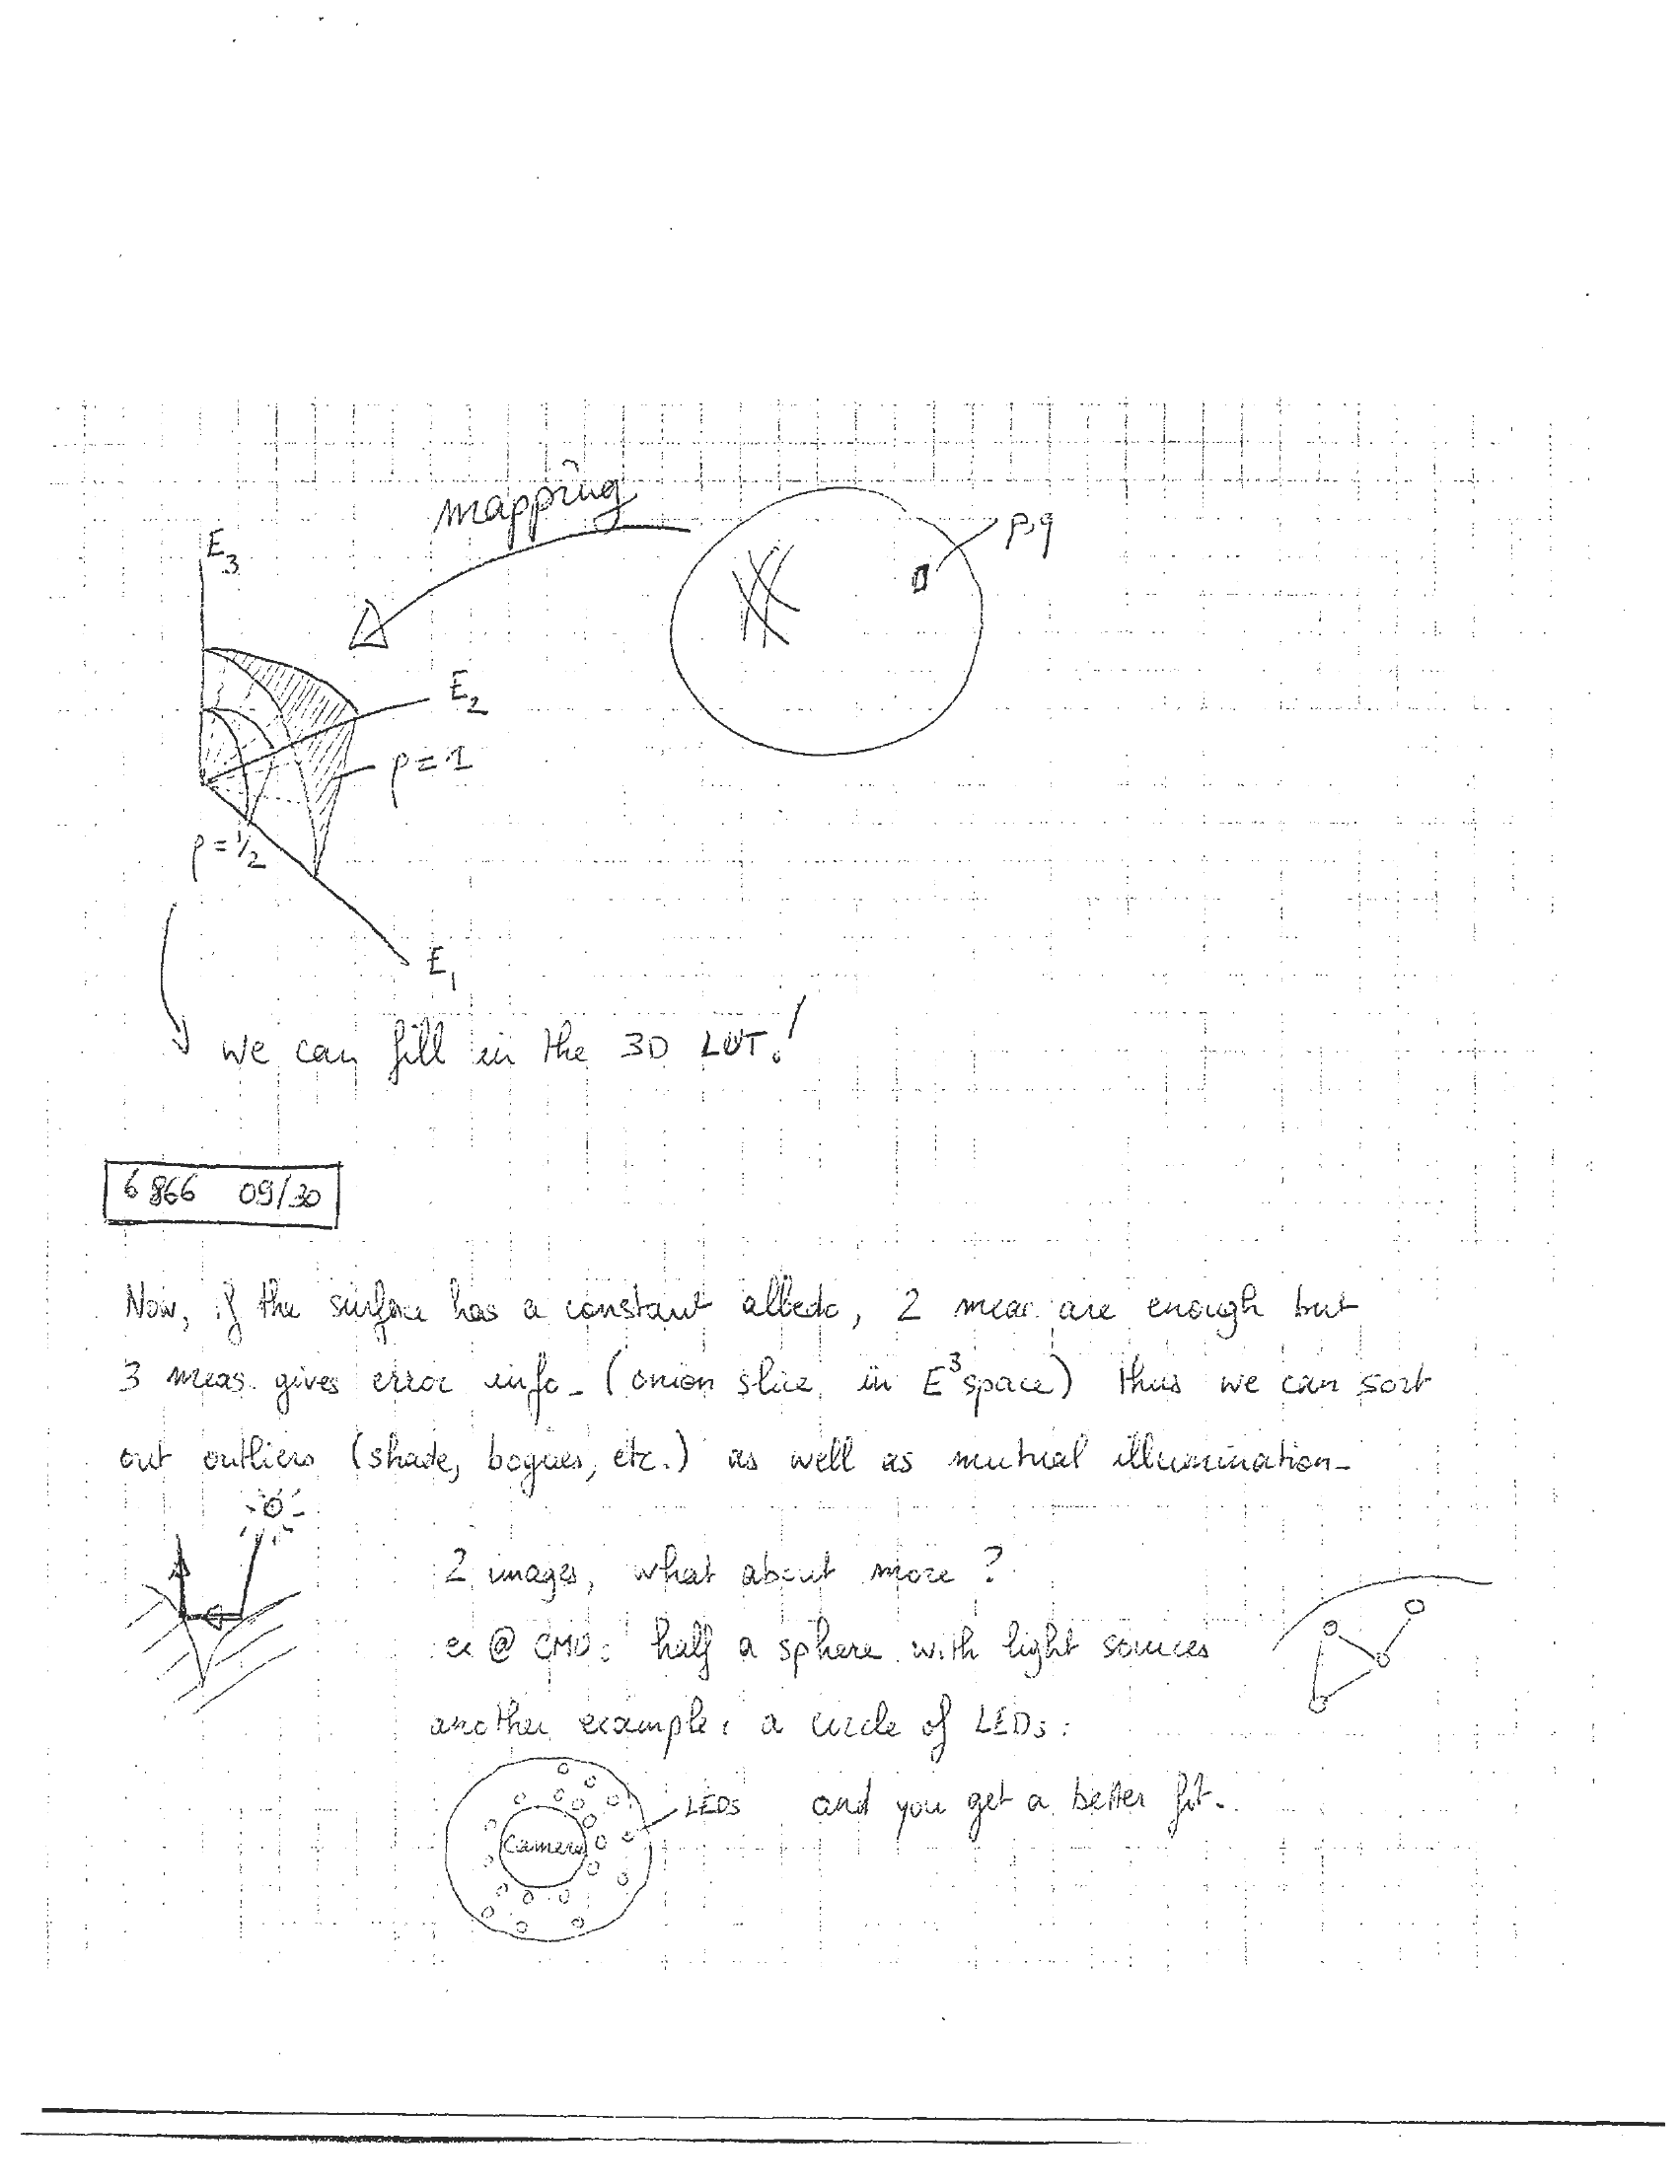 mapping
p,q
E3
E2
ρ=1
ρ=1/2
E1
we can fill in the 3D LUT!
6 866 09/30
Now, if the surface has a constant albedo, 2 meas. are enough but
3 meas. gives error info- (onion slice in E³ space) thus we can sort
out outliers (shade, bogues, etc.) as well as mutual illumination-
2 images, what about more ?
ex @ CMU: half a sphere with light sources
another example: a circle of LEDs:
LEDs and you get a better fit.
Camera